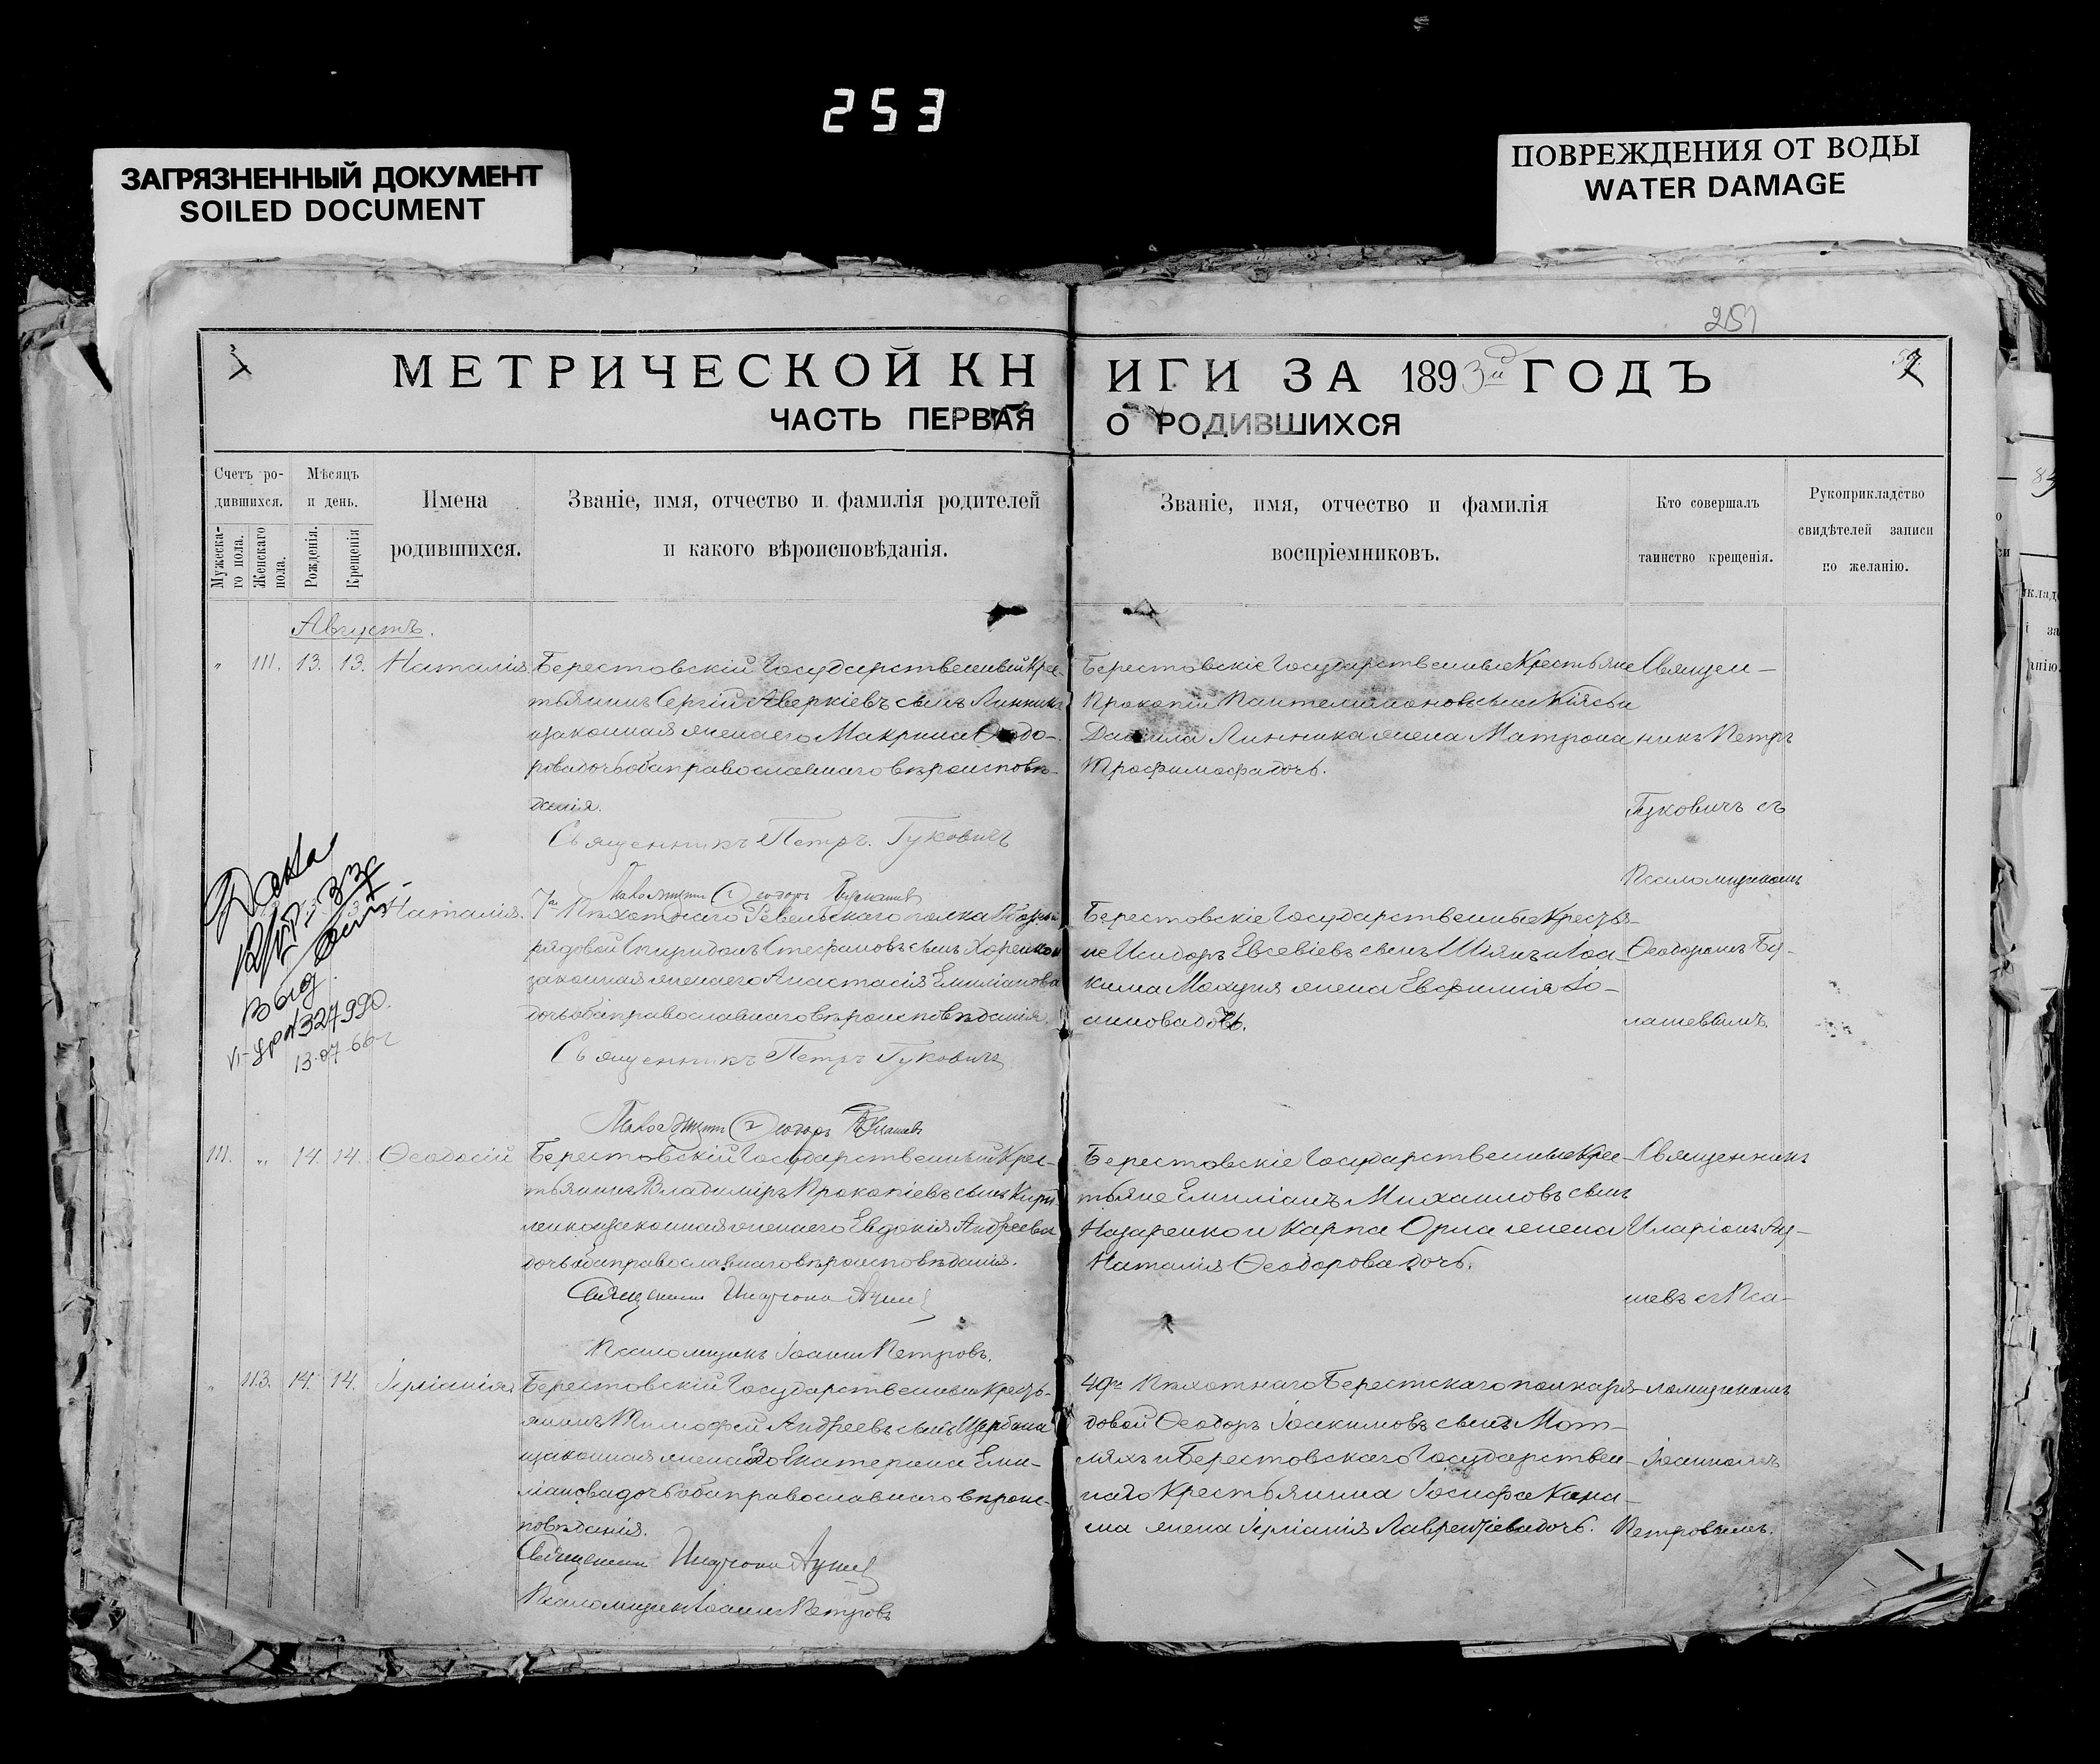 253
ЗАГРЯЗНЕННЫЙ ДОКУМЕНТ
SOILED DOCUMENT
ПОВРЕЖДЕНИЯ ОТ ВОДЫ
WATER DAMAGE
251
МЕТРИЧЕСКОЙ КНИГИ ЗА 1893й ГОДЪ
ЧАСТЬ ПЕРВАЯ О РОДИВШИХСЯ
Счетъ ро-
дившихся.
Мужеска-
го пола.
Женскаго
пола.
Мѣсяцъ
и день.
Рожденія.
Крещенія
Имена
родившихся.
Званіе, имя, отчество и фамилія родителей
и какого вѣроисповѣданія.
Званіе, имя, отчество и фамилія
воспріемниковъ.
Кто совершалъ
таинство крещенія.
Рукоприкладство
свидѣтелей записи
по желанію.
Августъ.
" 111. 13. 13. Наталія
Берестовскій Государственный Крес-
тьянинъ Сергій Аверкіевъ сынъ Линникъ
и законная жена его Макрина Ѳеодо-
рова дочь оба православнаго вѣроисповѣ-
данія.
Священникъ Петръ Гуковичъ
Берестовскіе Государственные Крестьяне
Прокопій Пантелимоновъ сынъ
Данила Линника жена Матрона
Трофимова дочь.
Священ-
никъ Петръ
Гуковичъ съ
Псаломщикомъ
Ѳеодоромъ Бу-
лашевымъ.
Дана
Выд
№327990.
13.07.66 г
Наталія.
7го Пѣхотнаго Ревельскаго полка
рядовой Спиридонъ Стефановъ сынъ
законная жена его Анастасія Емиліанова
дочь оба православнаго вѣроисповѣданія.
Священникъ Петръ Гуковичъ
Берестовскіе Государственные Крестья-
не Исидоръ Евсевіевъ сынъ и Іоа-
кима жена Евфимія Іо-
аннова дочь.
111. " 14. 14. Ѳеодосій
Берестовскій Государственный Крес-
тьянинъ Владиміръ Прокопіевъ сынъ Кири-
ленко и законная жена его Евдокія Андреева
дочь оба православнаго вѣроисповѣданія.
Священникъ Иларіонъ
Псаломщикъ Іоаннъ Петровъ.
Берестовскіе Государственные Крес-
тьяне Емиліанъ Михаиловъ сынъ
Назаренко и Карпа Орла жена
Наталія Ѳеодорова дочь.
Священникъ
Иларіонъ
съ Пса-
ломщикомъ
Іоанномъ
Петровымъ.
" 113. 14. 14. Іуліанія
Берестовскій Государственный Кресть-
янинъ Тимофей Андреевъ сынъ Щербина
и законная жена его Екатерина Еми-
ліанова дочь оба православнаго вѣроис-
повѣданія.
Священникъ Иларіонъ
Псаломщикъ Іоаннъ Петровъ
49го Пѣхотнаго Берестскаго полка ря-
довой Ѳеодоръ Іоакимовъ сынъ Мот-
ляхъ и Берестовскаго Государствен-
наго Крестьянина Іосифа
жена Іуліанія Лаврентіева дочь.